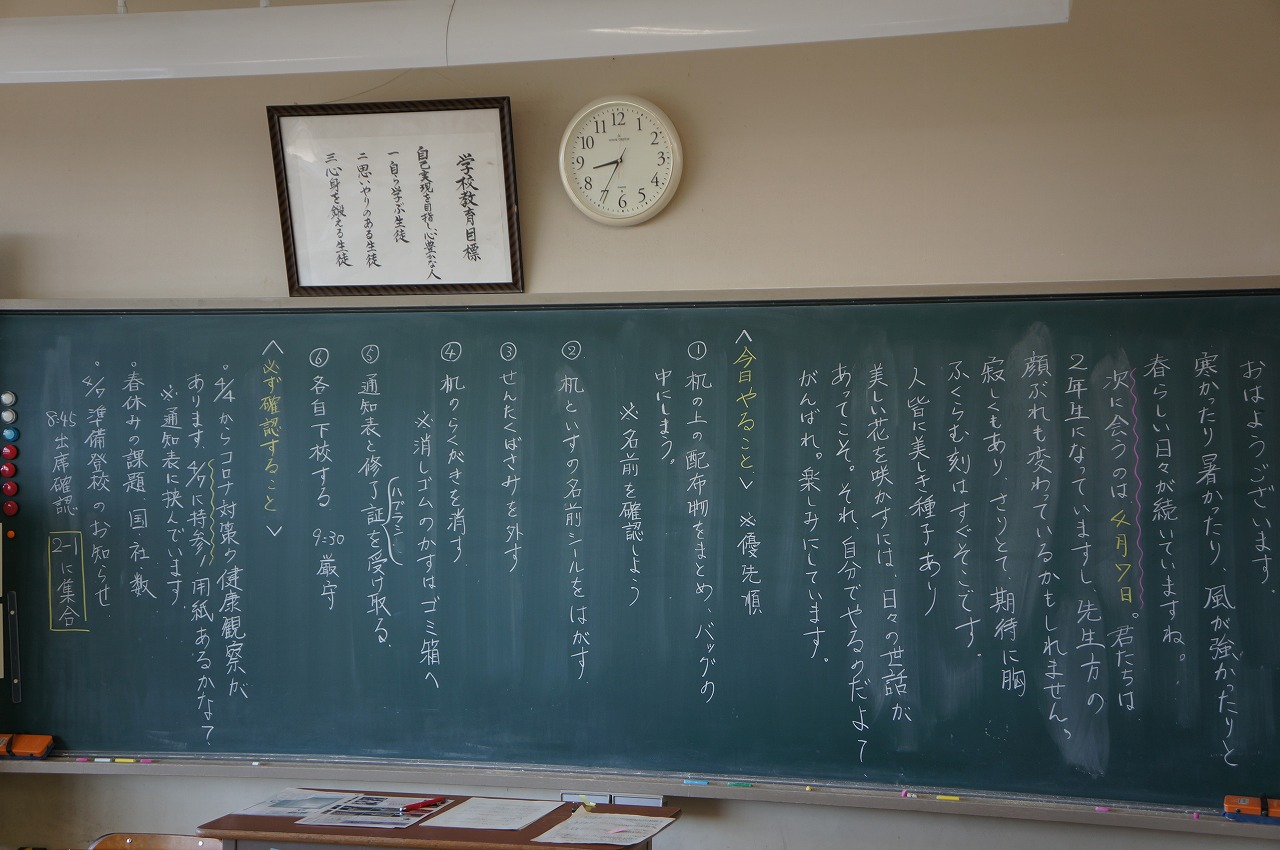 学校教育目標
自己実現を目指し、心豊かな人
一 自ら学ぶ生徒
二 思いやりのある生徒
三 心身を鍛える生徒
12
1
2
3
4
5
6
7
8
9
10
11
おはようございます。
寒かったり暑かったり、風が強かったりと
春らしい日々が続いていますね。
次に会うのは、4月7日。君たちは
2年生になっていますし、先生方の
顔ぶれも変わっているかもしれません。
寂しくもあり、さりとて、期待に胸
ふくらむ刻はすぐそこです。
人皆に美しき種子あり
美しい花を咲かすには、日々の世話が
あってこそ。それ、自分でやるのだよて
がんばれ。楽しみにしています。
<今日やること> ※優先順
① 机の上の配布物をまとめ、バッグの
中にしまう。
※名前を確認しよう
② 机といすの名前シールをはがす
③ せんたくばさみを外す
④ 机のらくがきを消す
※消しゴムのかすはゴミ箱へ
⑤ 通知表と修了証を受け取る。
⑥ 各自下校する 9:30厳守
<必ず確認すること>
。4/4からコロナ対策の健康観察が
あります。4/7に持参♪用紙あるかなて
※通知表に挟んでいます
。春休みの課題 国・社・数
。4/7準備登校のお知らせ
8:45出席確認 2-1に集合